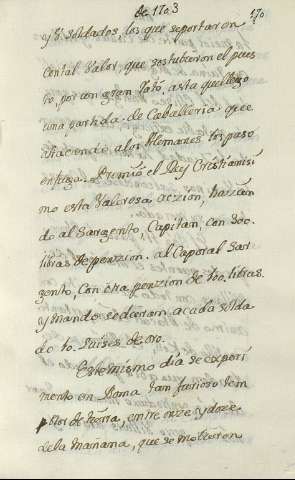 de 1703
170
y 8. soldados, los que se portaron
con tal valor, que sostubieron el pues
to, por un gran rato, asta que llego
una partida de Caballeria que
atacando a los Alemanes los puso
en fuga. Premió el Rey Cristianisi
mo esta Valerosa aczion, hazien
do al Sargento, Capitan, con 300.
libras de penzion. al Caporal Sar
gento, con otra penzion de 100. libras.
y mando se dieran a cada solda
do 10. Luises de oro.
Este mismo dia se experi
mento en Roma tan furioso tem
blor de tierra, entre onze y doze
de la mañana, que se metieron